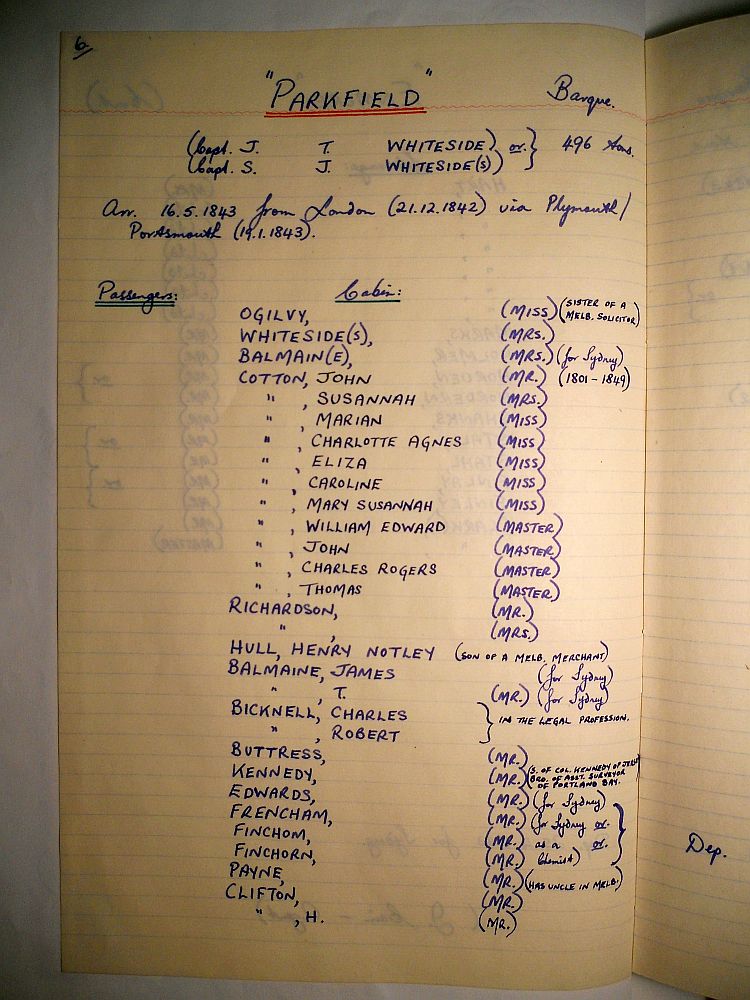 6.
"PARKFIELD" Barque.
(Capt. J. T. WHITESIDE) or. } 496 tons.
(Capt. S. J. WHITESIDE(S))
Arr. 16.5.1843 from London (21.12.1842) via Plymouth/
Portsmouth (19.1.1843).
Passengers: Cabin:
OGILVY, (MISS) (SISTER OF A MELB. SOLICITOR)
WHITESIDE(S), (MRS.)
BALMAIN(E), (MRS.) (for Sydney)
COTTON, JOHN (MR.) (1801-1849)
" , SUSANNAH (MRS.)
" , MARIAN (MISS)
" , CHARLOTTE AGNES (MISS)
" , ELIZA (MISS)
" , CAROLINE (MISS)
" , MARY SUSANNAH (MISS)
" , WILLIAM EDWARD (MASTER)
" , JOHN (MASTER)
" , CHARLES ROGERS (MASTER)
" , THOMAS (MASTER)
RICHARDSON, (MR.)
" , (MRS.)
HULL, HENRY NOTLEY (SON OF A MELB. MERCHANT)
BALMAINE, JAMES (for Sydney)
" , T. (MR.) (for Sydney)
BICKNELL, CHARLES } IN THE LEGAL PROFESSION.
" , ROBERT
BUTTRESS, (MR.)
KENNEDY, (MR.) (S. OF COL. KENNEDY OF BRO. OF ASST. SURVEYOR OF PORTLAND BAY.
EDWARDS, (MR.) (for Sydney)
FRENCHAM, (MR.) (for Sydney or. }
FINCHOM, (MR.) as a or.
FINCHORN, (MR.) Chemist)
PAYNE, (MR.) (HAS UNCLE IN MELB.)
CLIFTON, (MR.)
" , H. (MR.)
Dep.